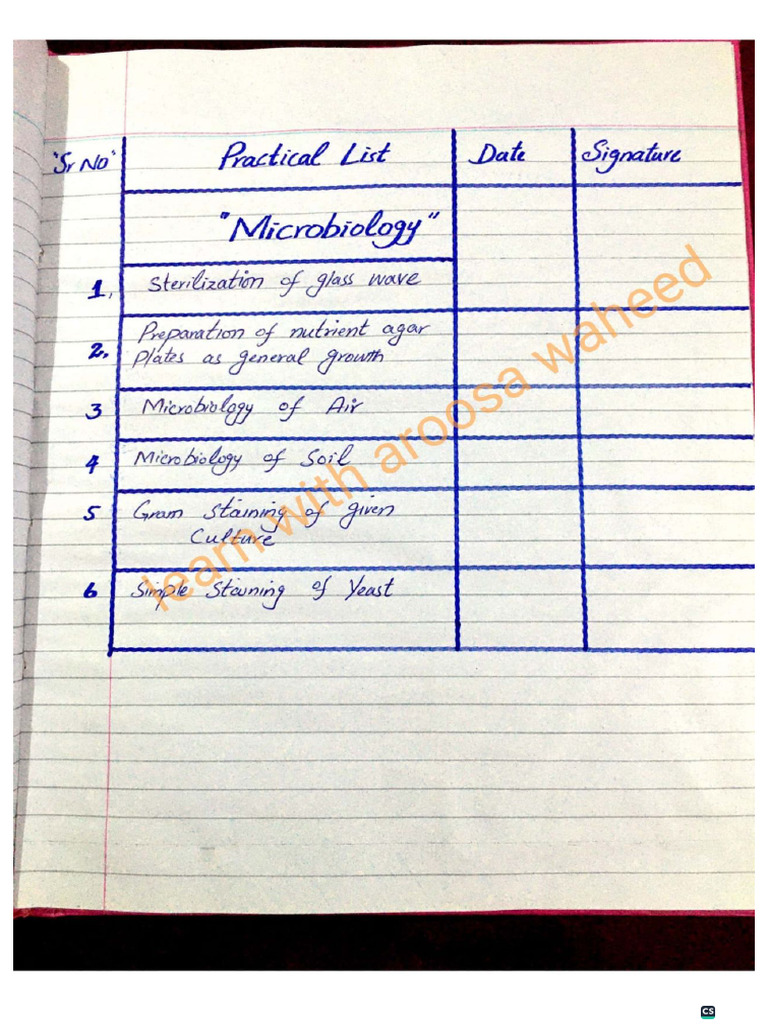 "Sr No" Practical List Date Signature
"Microbiology"
1. Sterilization of glass wave
2. Preparation of nutrient agar
plates as general growth
3 Microbiology of Air
4 Microbiology of Soil
5 Gram Staining of given
Culture
6 Simple Staining of Yeast
learn with aroosa waheed
CS